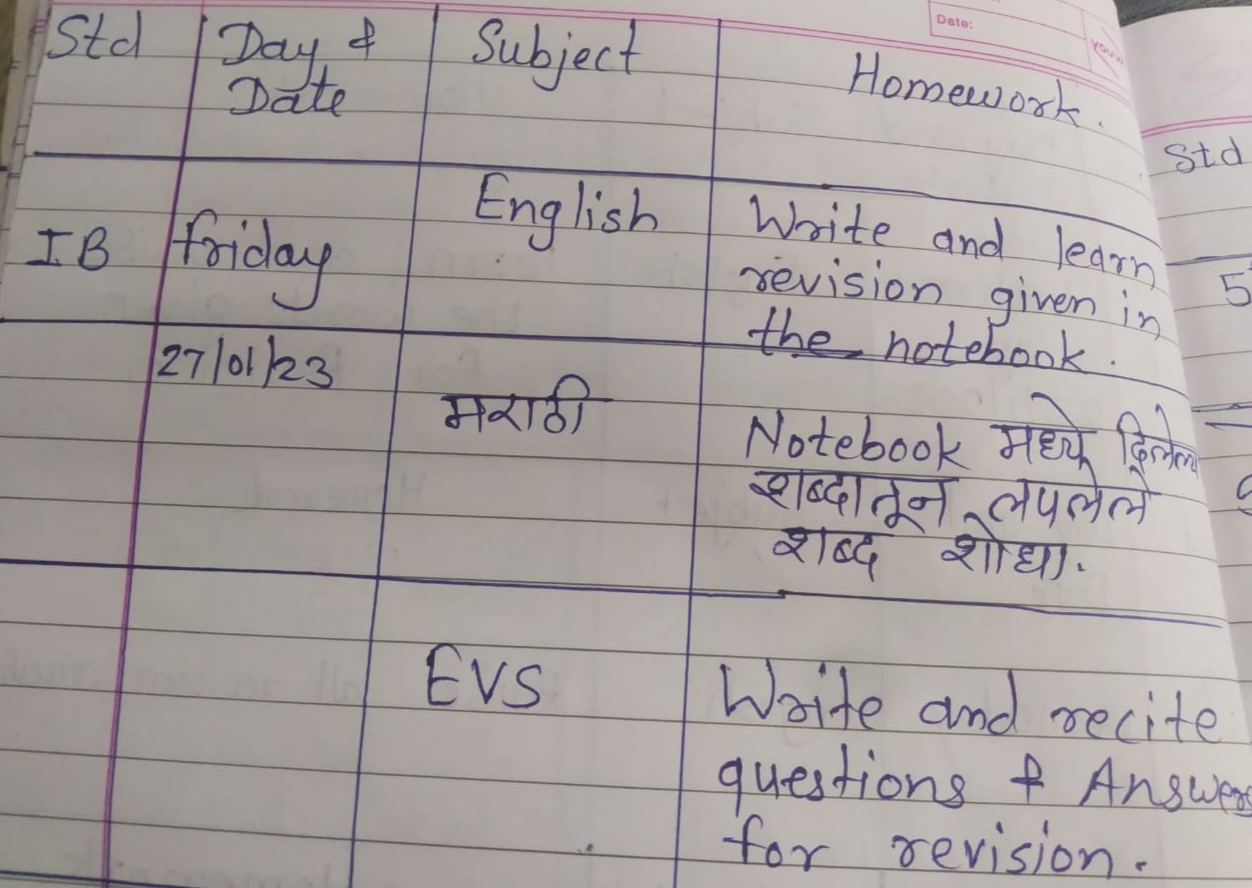 Date:
Std Day & Subject Homework.
Date
Std
English Write and learn
I B friday revision given in
5
the notebook.
27/01/23
मराठी Notebook मध्ये दिलेल्या
शब्दातून लपलेले
शब्द शोधा.
EVS Write and recite
questions & Answers
for revision.